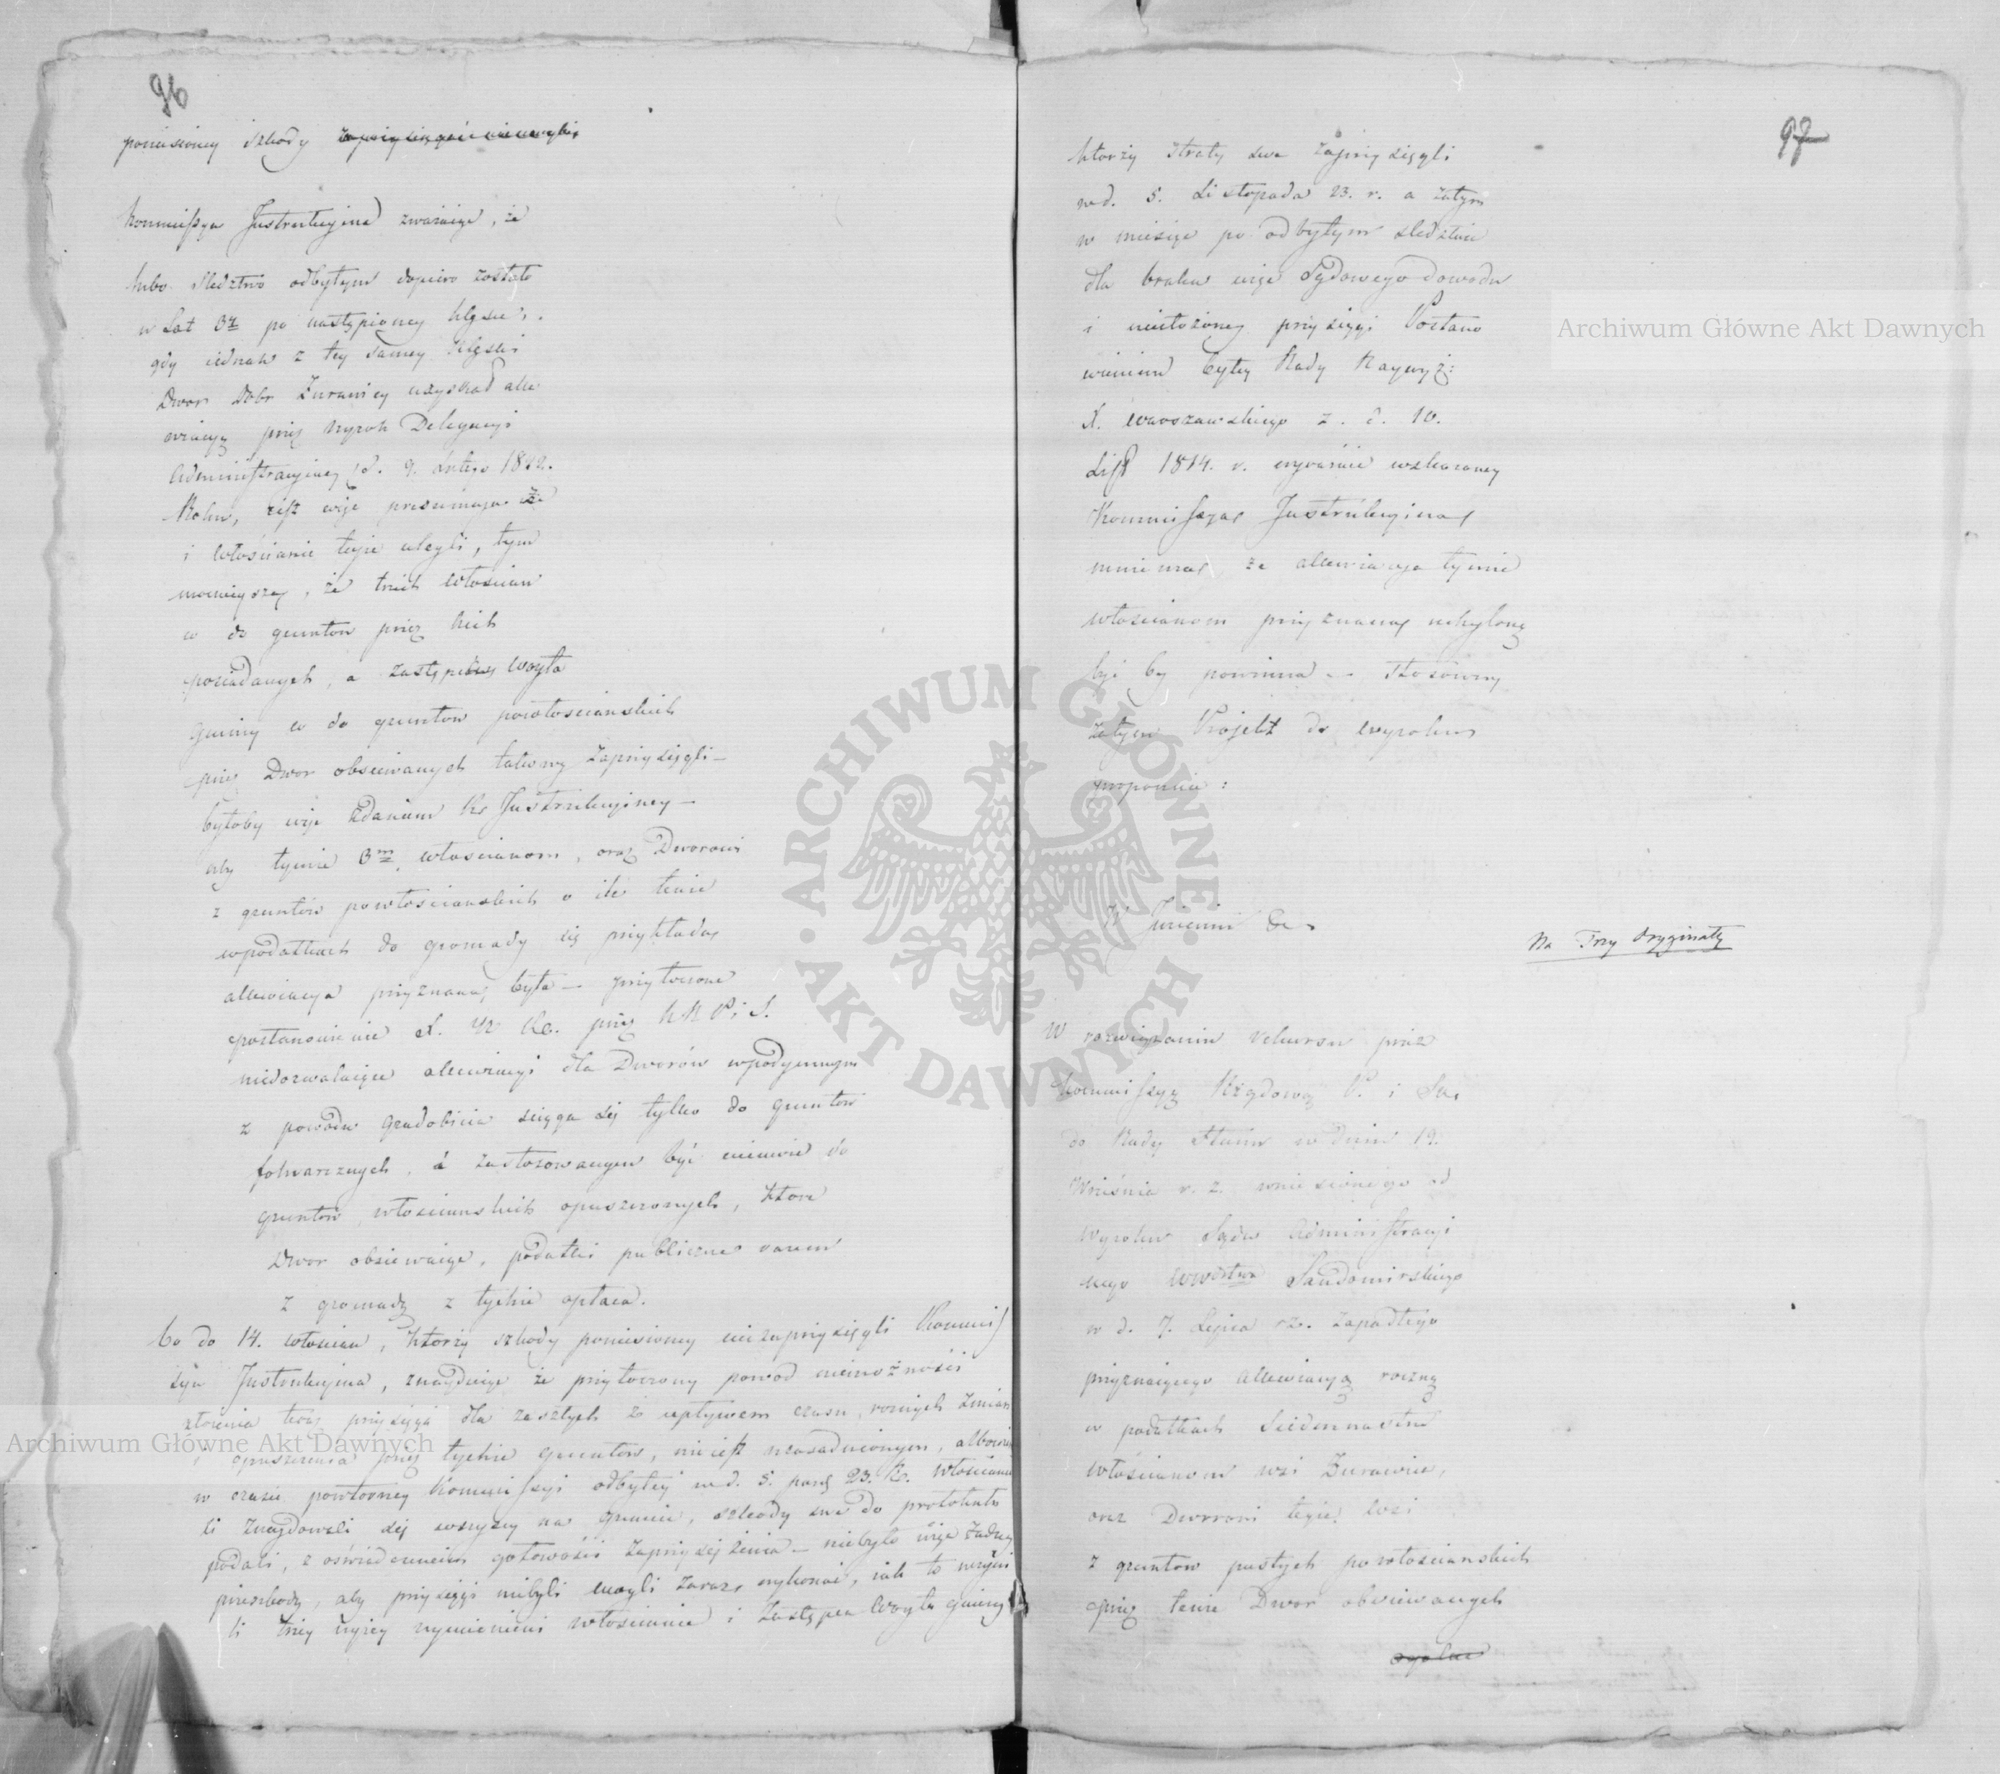 96
poniesioney szkody zaprzysięgać nie mogli
Kommissya Instrukcyina zważaiąc, że
lubo śledztwo odbytym dopiero zostało
w lat 3 po nastąpioney klęsce,
gdy iednak z tey samey klęski
Dwor Dobr Żurawicy uzyskał alle
wiacyą przez wyrok Delegacyi
Administracyiney d. 9. Lutego 1822.
Roku, iest więc że
i włościanie teyże ulegli, tym
mocnieyszą, że trzech włościan
co do gruntow przez nich
posiadanych, a zastępca woyta
gminy co do gruntow powłościanskich
przez Dwor obsiewanych takową zaprzysięgli –
byłoby więc zdaniem Ko Instrukcyiney –
aby tymże 3m włościanom, oraz Dworowi
z gruntów powłościanskich o ile tenże
w podatkach do gromady się przykłada
allewiacya przyznana była – przytoczone
postanowienie przez K R P i S.
niedozwalaiące allewiacyi dla Dworów w podymnym
z powodu gradobicia sciąga się tylko do gruntow
folwarcznych, a zastosowanym być niemoże do
gruntow włościanskich opuszczonych, ktore
Dwor obsiewaiąc, podatki publiczne razem
z gromadą z tychże opłaca.
Co do 14. włościan, ktorzy szkody poniesioney niezaprzysięgli Kommis
sya Instrukcyina, znayduiąc że przytoczony powod niemożności
złożenia teraz przysięgi dla zaszłych z upływem czasu roznych zmian
i opuszczenia przez tychże gruntow, nie iest uzasadnionym, albowiem
w czasie powtorney Kommissyi odbytey w d. 5. paźd 23. R. włościanie
ci znaydowali się wszyscy na gruncie, szkody swe do protokułu
podali, z oświadczeniem gotowości zaprzysiężenia – niebyło więc żadney
przeszkody, aby przysięgi niebyli mogli zaraz wykonać, iak to uczyni
li trzey wyżey wymienieni włościanie i zastępca Woyta gminy
97
ktorzy straty swe zaprzysięgli
w d. 5. Listopada 23. r. a zatym
w miesiąc po odbytym śledztwie
dla braku więc Sądowego dowodu
i niezłożoney przysięgi Postano
wieniem byłey Rady Naywyż:
X. Warszawskiego z d. 10.
List 1814. r. wyraźnie wskazaney
Kommissya Instrukcyina
mniema, że allewiacya tymże
włościanom przyznana uchyloną
być by powinna – Stosowny
zatym Projekt do wyroku
proponuie:
W Imieniu &c
Na Trzy Oryginały
W rozwiązaniu rekursu przez
Kommissyą Rządową P. i Sk.
do Rady Stanu w dniu 19.
Września r. z. wniesionego od
wyroku Sądu Administracyi
nego Wwdztwa Sandomirskiego
w d. 7. Lipca rz. zapadłego
przyznaiącego allewiacyą roczną
w podatkach Siedemnastu
włościanom wsi Żurawica,
oraz Dworowi teyże wsi
z gruntow pustych powłościanskich
przez tenże Dwor obsiewanych
Archiwum Główne Akt Dawnych
Archiwum Główne Akt Dawnych
ARCHIWUM GŁÓWNE · AKT DAWNYCH ·